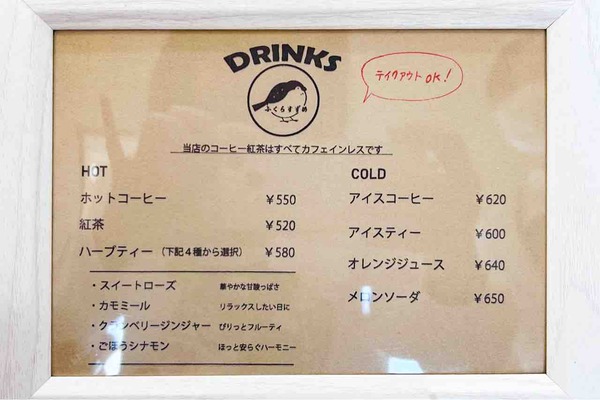 DRINKS
ふくらすずめ
テイクアウト OK!
当店のコーヒー紅茶はすべてカフェインレスです
HOT
ホットコーヒー ￥550
紅茶 ￥520
ハーブティー (下記４種から選択) ￥580
・スイートローズ 華やかな甘酸っぱさ
・カモミール リラックスしたい日に
・クランベリージンジャー ぴりっとフルーティ
・ごぼうシナモン ほっと安らぐハーモニー
COLD
アイスコーヒー ￥620
アイスティー ￥600
オレンジジュース ￥640
メロンソーダ ￥650